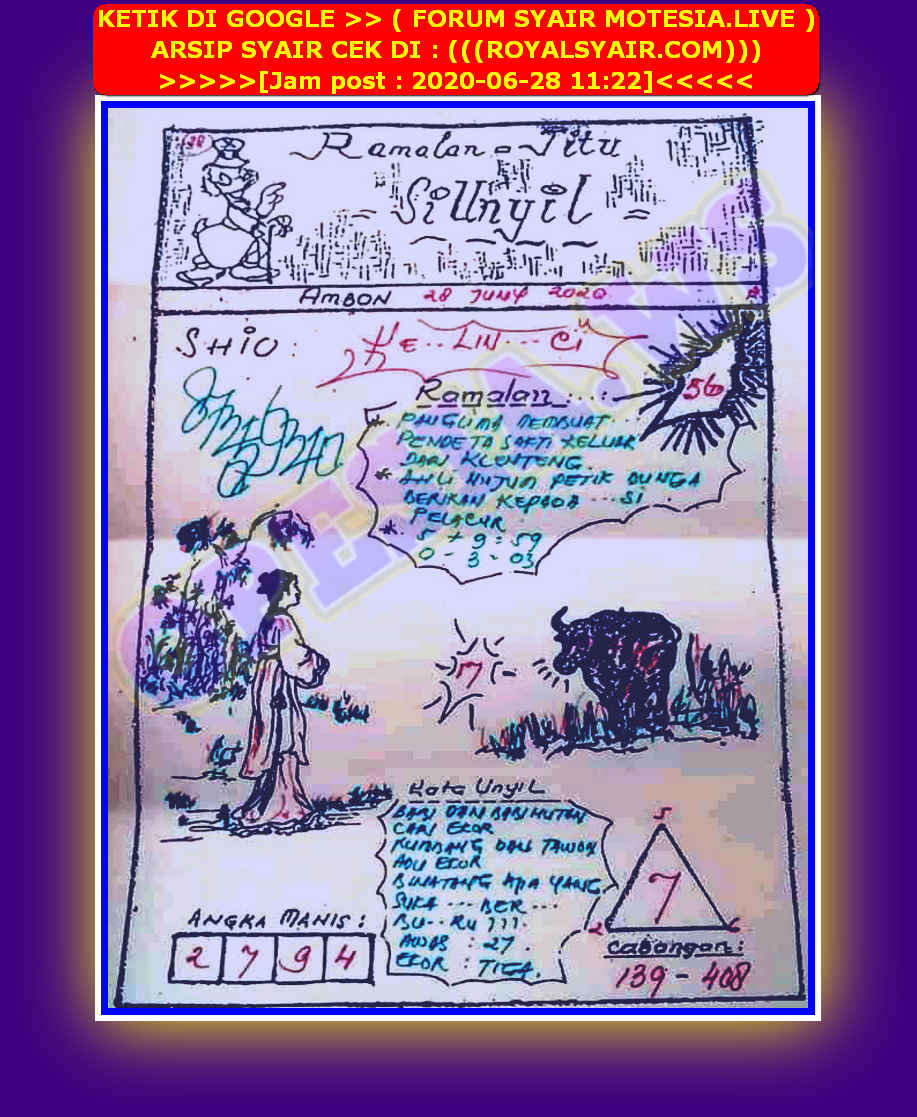 KETIK DI GOOGLE >> ( FORUM SYAIR MOTESIA.LIVE )
ARSIP SYAIR CEK DI : (((ROYALSYAIR.COM)))
>>>>>[Jam post : 2020-06-28 11:22]<<<<<
28
Ramalan = Jitu
= Si Unyil =
AMBON 28 JUNY 2020
SHIO :
KE .. LIN ... Ci
56
Ramalan : . . :
* PANGLIMA MEMBUAT ...
PENDETA SAKTI KELUAR
DARI KLENTENG.
* AHLI NUJUM PETIK BUNGA
BERIKAN KEPADA ... SI
PELACUR
* 5 + 9 = 59
0 - 3 = 03
7 -
Kata Unyil
BABI DAN BABI HUTAN
CARI EKOR
KUMBANG DAN TAWON
ADU EKOR
BINATANG APA YANG
SUKA ... BER ...
BU .. RU ???
AWAS : 27 .
EKOR : TIGA .
5
7
2
6
ANGKA MANIS :
2 7 9 4
Cabangan :
139 - 408